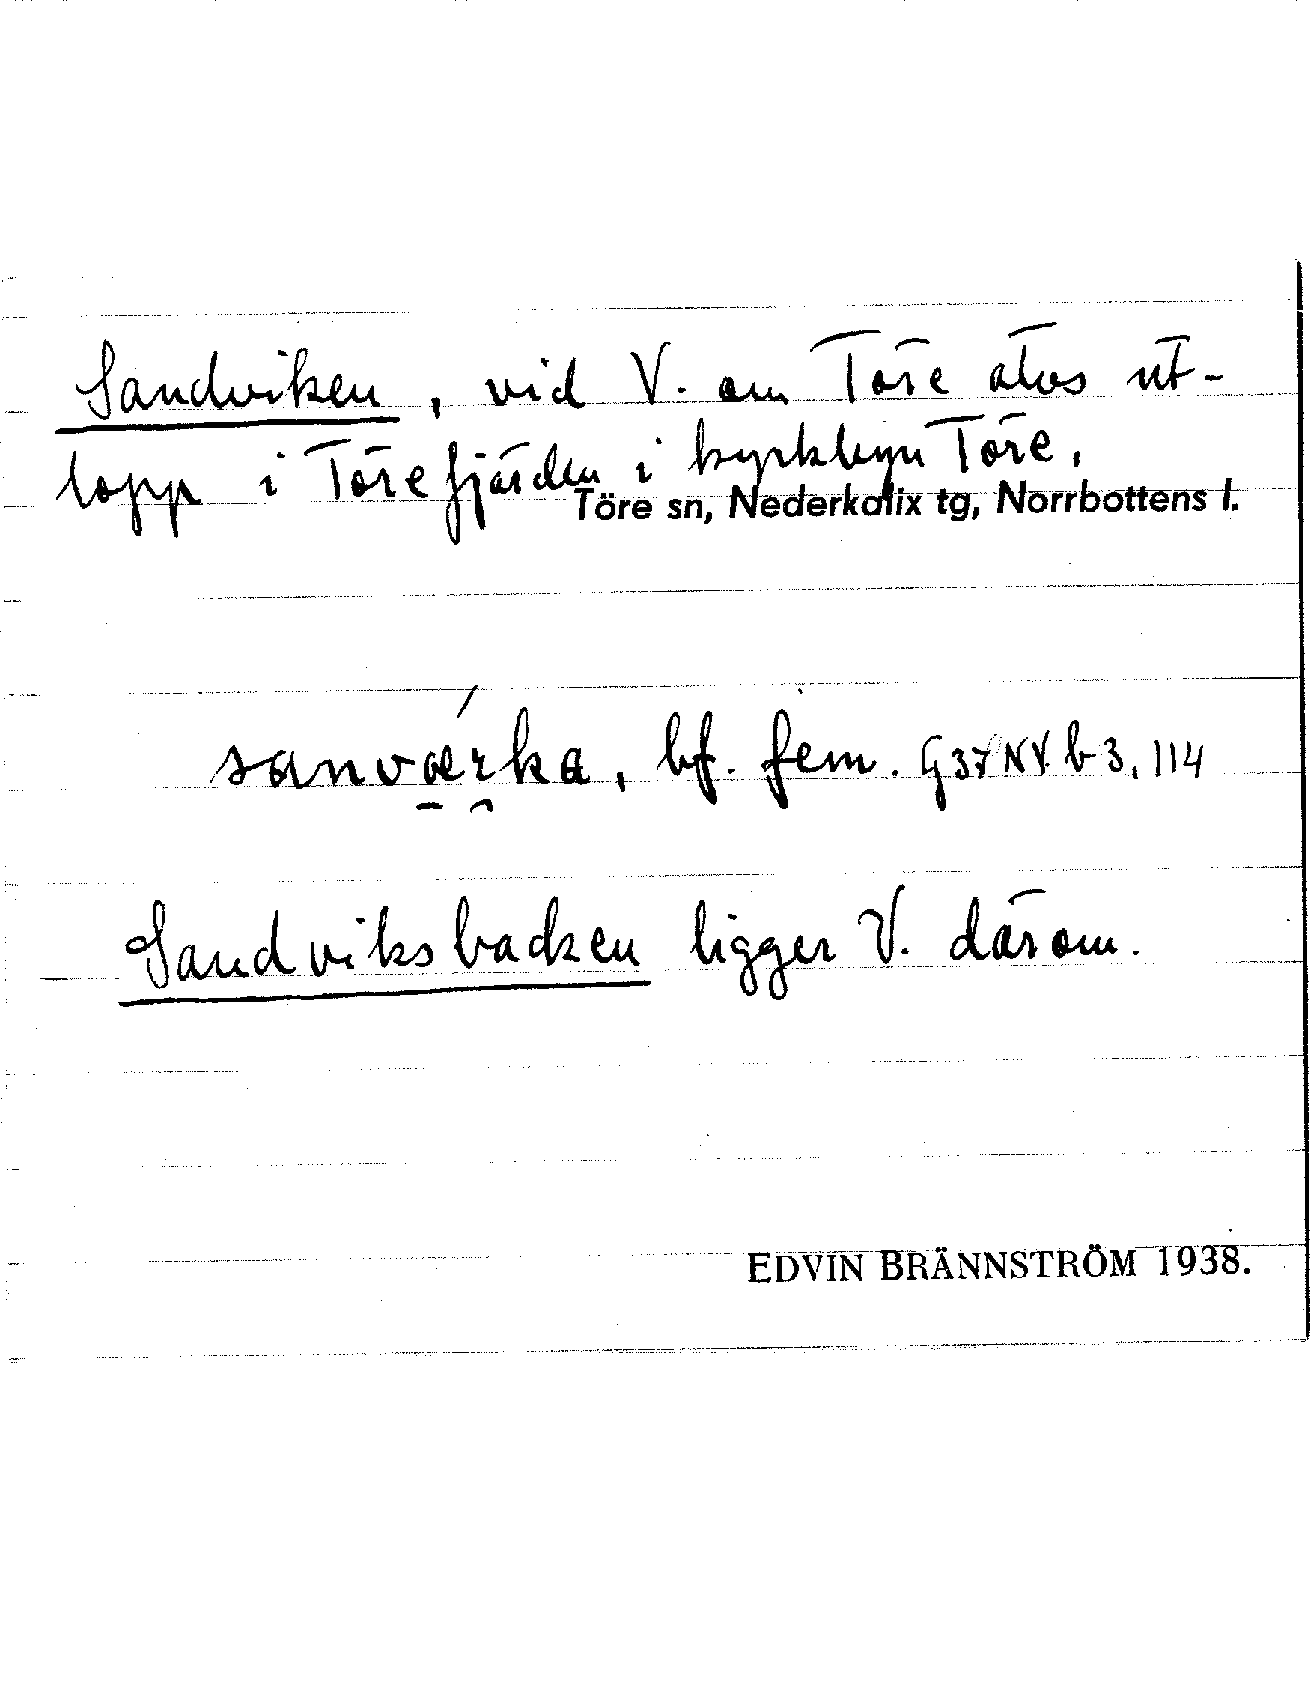 Sandviken, vid V. om Töre älvs ut-
lopp i Törefjärden i kyrkbyn Töre,
Töre sn, Nederkalix tg, Norrbottens l.
sanværka, bf. fem. G37NV b3, 114
Sandviksbacken ligger V. därom.
EDVIN BRÄNNSTRÖM 1938.